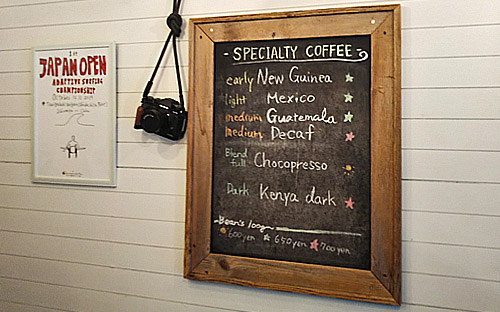 1st
JAPAN OPEN
ADAPTIVE SURFING
CHAMPIONSHIP
- SPECIALTY COFFEE -
early New Guinea
light Mexico
medium Guatemala
medium Decaf
Blend
full Chocopresso
Dark Kenya dark
Bean's 100g
600yen 650yen 700yen